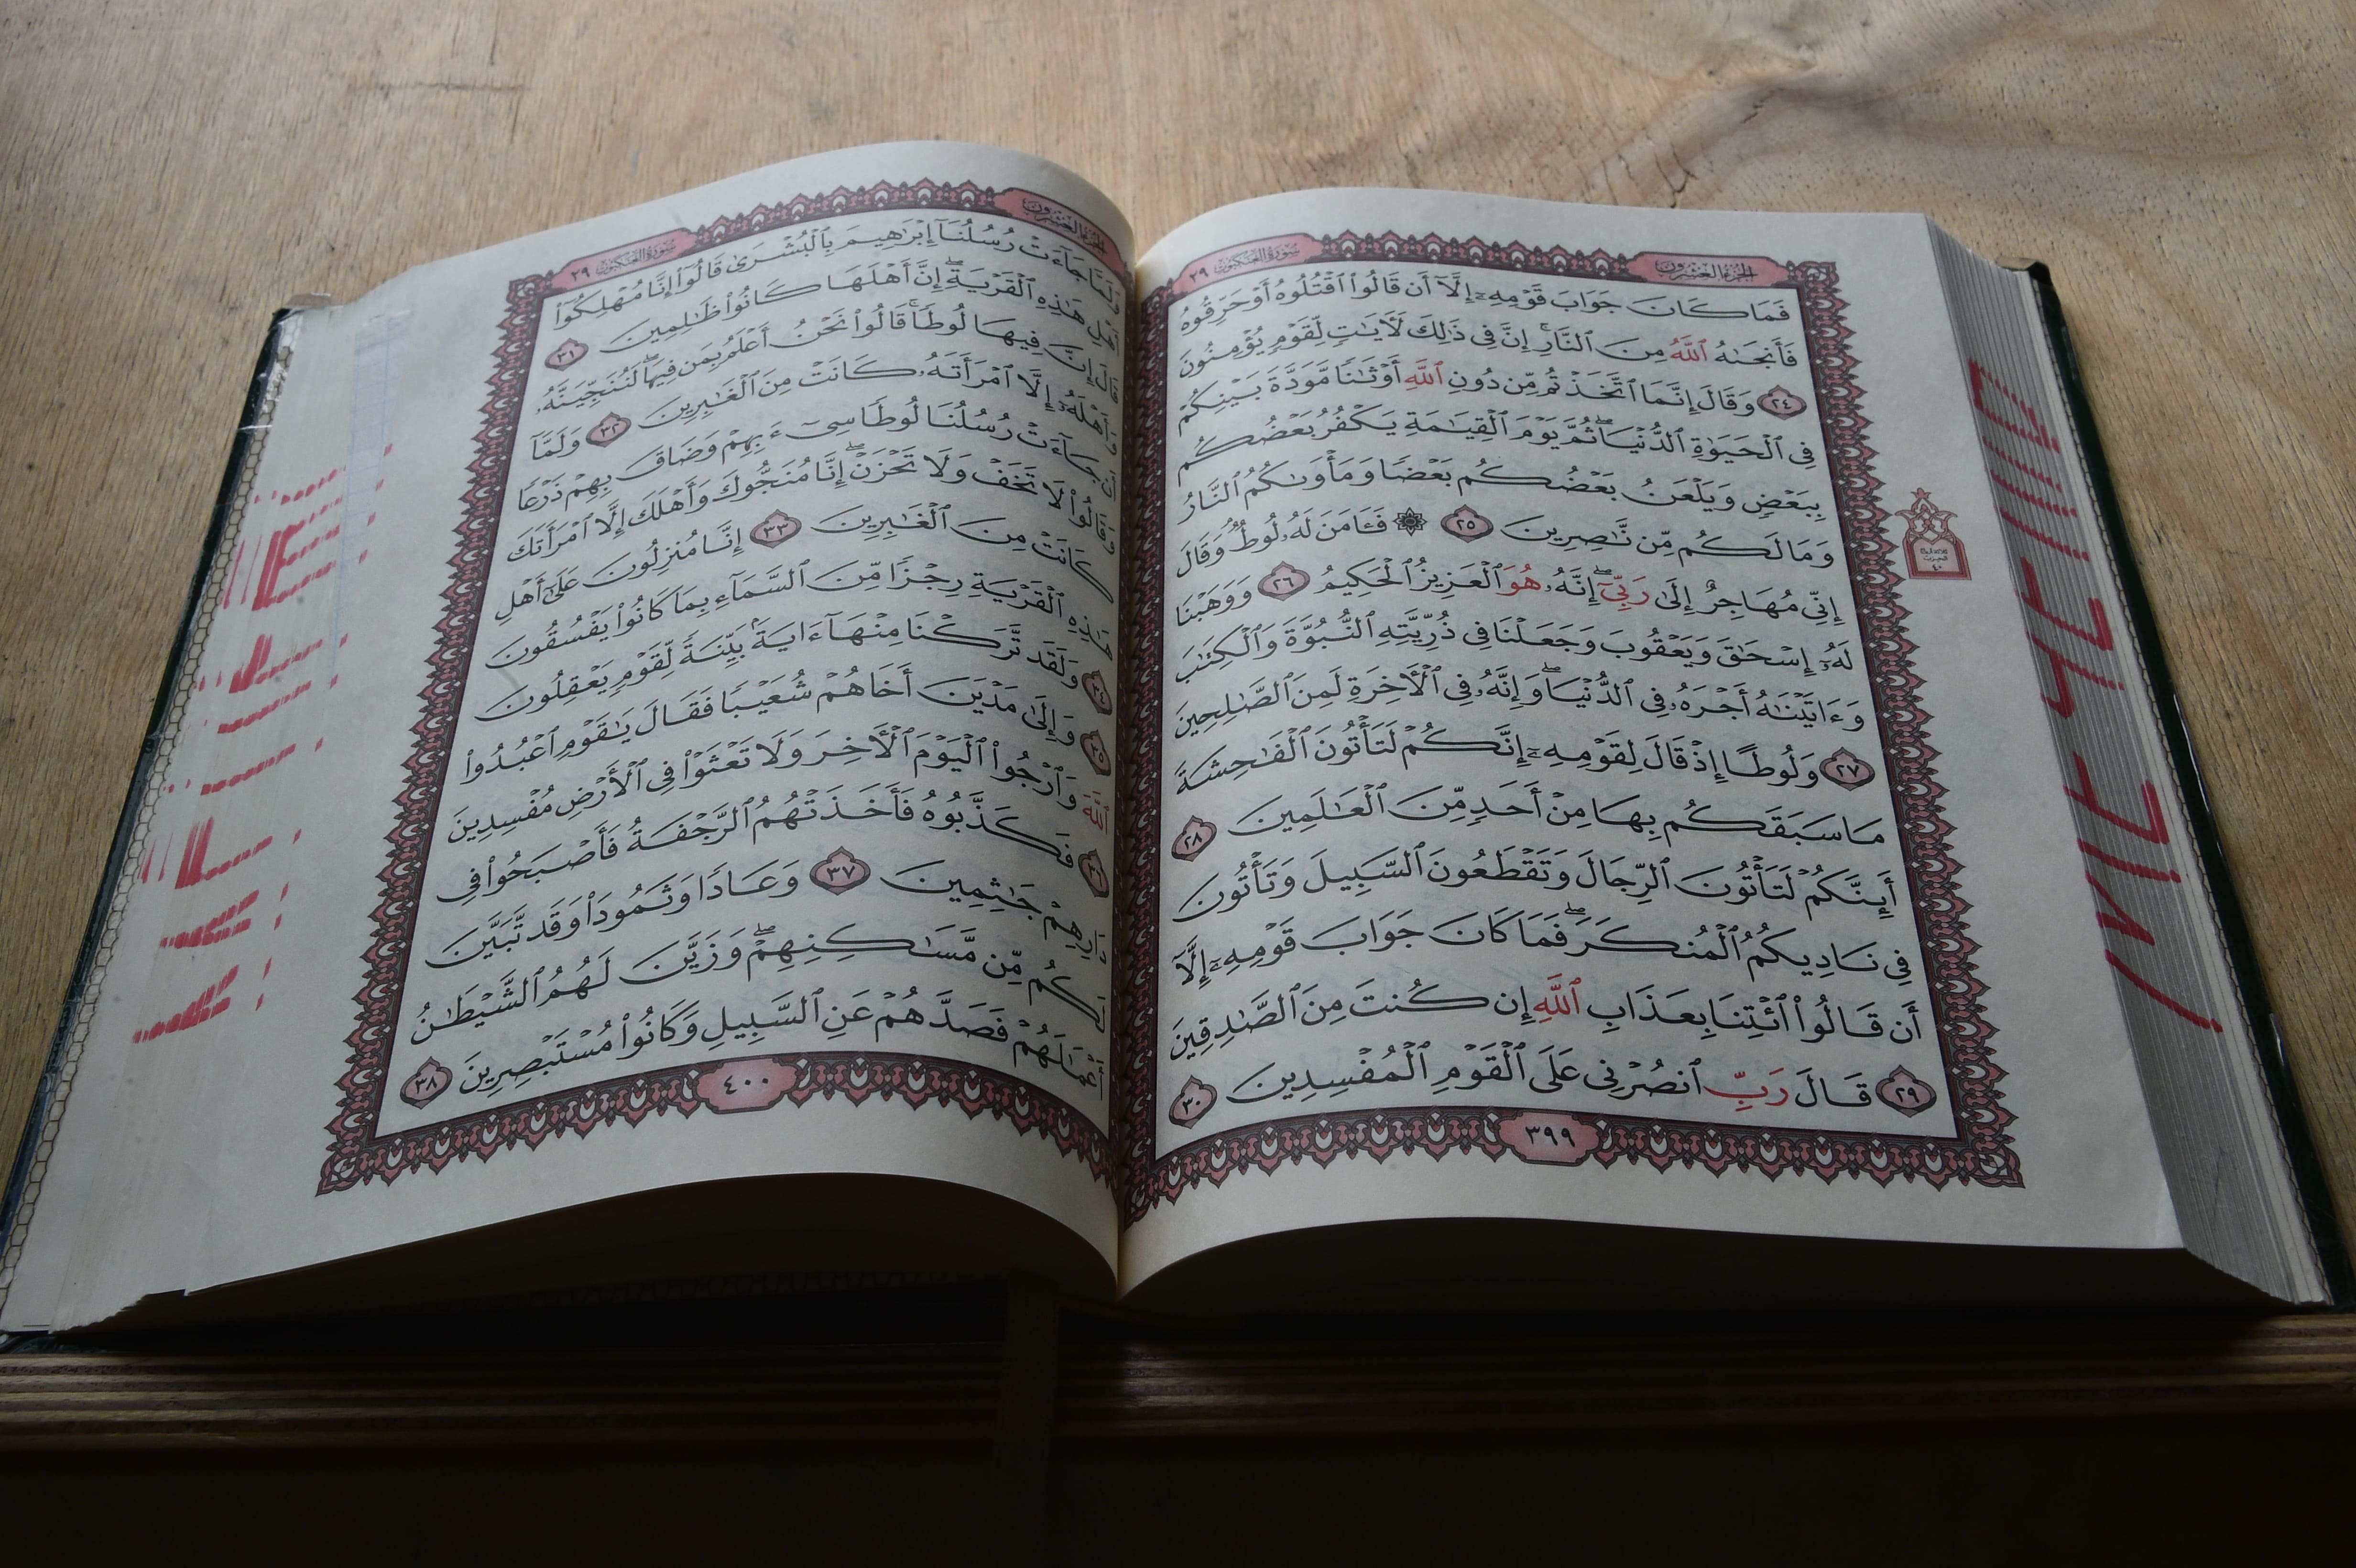 الجزء العشرون
سورة العنكبوت ٢٩
فَمَا كَانَ جَوَابَ قَوْمِهِۦٓ إِلَّآ أَن قَالُوا۟ ٱقْتُلُوهُ أَوْ حَرِّقُوهُ
فَأَنجَىٰهُ ٱللَّهُ مِنَ ٱلنَّارِ ۚ إِنَّ فِى ذَٰلِكَ لَـَٔايَـٰتٍ لِّقَوْمٍ يُؤْمِنُونَ
٢٤ وَقَالَ إِنَّمَا ٱتَّخَذْتُم مِّن دُونِ ٱللَّهِ أَوْثَـٰنًا مَّوَدَّةَ بَيْنِكُمْ
فِى ٱلْحَيَوٰةِ ٱلدُّنْيَا ۖ ثُمَّ يَوْمَ ٱلْقِيَـٰمَةِ يَكْفُرُ بَعْضُكُم
بِبَعْضٍ وَيَلْعَنُ بَعْضُكُم بَعْضًا وَمَأْوَىٰكُمُ ٱلنَّارُ
وَمَا لَكُم مِّن نَّـٰصِرِينَ ٢٥ ۞ فَـَٔامَنَ لَهُۥ لُوطٌ ۘ وَقَالَ
إِنِّى مُهَاجِرٌ إِلَىٰ رَبِّىٓ ۖ إِنَّهُۥ هُوَ ٱلْعَزِيزُ ٱلْحَكِيمُ ٢٦ وَوَهَبْنَا
لَهُۥٓ إِسْحَـٰقَ وَيَعْقُوبَ وَجَعَلْنَا فِى ذُرِّيَّتِهِ ٱلنُّبُوَّةَ وَٱلْكِتَـٰبَ
وَءَاتَيْنَـٰهُ أَجْرَهُۥ فِى ٱلدُّنْيَا ۖ وَإِنَّهُۥ فِى ٱلْـَٔاخِرَةِ لَمِنَ ٱلصَّـٰلِحِينَ
٢٧ وَلُوطًا إِذْ قَالَ لِقَوْمِهِۦٓ إِنَّكُمْ لَتَأْتُونَ ٱلْفَـٰحِشَةَ
مَا سَبَقَكُم بِهَا مِنْ أَحَدٍ مِّنَ ٱلْعَـٰلَمِينَ ٢٨
أَئِنَّكُمْ لَتَأْتُونَ ٱلرِّجَالَ وَتَقْطَعُونَ ٱلسَّبِيلَ وَتَأْتُونَ
فِى نَادِيكُمُ ٱلْمُنكَرَ ۖ فَمَا كَانَ جَوَابَ قَوْمِهِۦٓ إِلَّآ
أَن قَالُوا۟ ٱئْتِنَا بِعَذَابِ ٱللَّهِ إِن كُنتَ مِنَ ٱلصَّـٰدِقِينَ
٢٩ قَالَ رَبِّ ٱنصُرْنِى عَلَى ٱلْقَوْمِ ٱلْمُفْسِدِينَ ٣٠
٣٩٩
الحزب
٤٠
الجزء العشرون
سورة العنكبوت ٢٩
وَلَمَّا جَآءَتْ رُسُلُنَآ إِبْرَٰهِيمَ بِٱلْبُشْرَىٰ قَالُوٓا۟ إِنَّا مُهْلِكُوٓا۟
أَهْلِ هَـٰذِهِ ٱلْقَرْيَةِ ۖ إِنَّ أَهْلَهَا كَانُوا۟ ظَـٰلِمِينَ ٣١
قَالَ إِنَّ فِيهَا لُوطًا ۚ قَالُوا۟ نَحْنُ أَعْلَمُ بِمَن فِيهَا ۖ لَنُنَجِّيَنَّهُۥ
وَأَهْلَهُۥٓ إِلَّا ٱمْرَأَتَهُۥ كَانَتْ مِنَ ٱلْغَـٰبِرِينَ ٣٢ وَلَمَّآ
جَآءَتْ رُسُلُنَا لُوطًا سِىٓءَ بِهِمْ وَضَاقَ بِهِمْ ذَرْعًا
وَقَالُوا۟ لَا تَخَفْ وَلَا تَحْزَنْ ۖ إِنَّا مُنَجُّوكَ وَأَهْلَكَ إِلَّا ٱمْرَأَتَكَ
كَانَتْ مِنَ ٱلْغَـٰبِرِينَ ٣٣ إِنَّا مُنزِلُونَ عَلَىٰٓ أَهْلِ
هَـٰذِهِ ٱلْقَرْيَةِ رِجْزًا مِّنَ ٱلسَّمَآءِ بِمَا كَانُوا۟ يَفْسُقُونَ
٣٤ وَلَقَد تَّرَكْنَا مِنْهَآ ءَايَةًۢ بَيِّنَةً لِّقَوْمٍ يَعْقِلُونَ
٣٥ وَإِلَىٰ مَدْيَنَ أَخَاهُمْ شُعَيْبًا فَقَالَ يَـٰقَوْمِ ٱعْبُدُوا۟
ٱللَّهَ وَٱرْجُوا۟ ٱلْيَوْمَ ٱلْـَٔاخِرَ وَلَا تَعْثَوْا۟ فِى ٱلْأَرْضِ مُفْسِدِينَ
٣٦ فَكَذَّبُوهُ فَأَخَذَتْهُمُ ٱلرَّجْفَةُ فَأَصْبَحُوا۟ فِى
دَارِهِمْ جَـٰثِمِينَ ٣٧ وَعَادًا وَثَمُودَا۟ وَقَد تَّبَيَّنَ
لَكُم مِّن مَّسَـٰكِنِهِمْ ۖ وَزَيَّنَ لَهُمُ ٱلشَّيْطَـٰنُ
أَعْمَـٰلَهُمْ فَصَدَّهُمْ عَنِ ٱلسَّبِيلِ وَكَانُوا۟ مُسْتَبْصِرِينَ ٣٨
٤٠٠